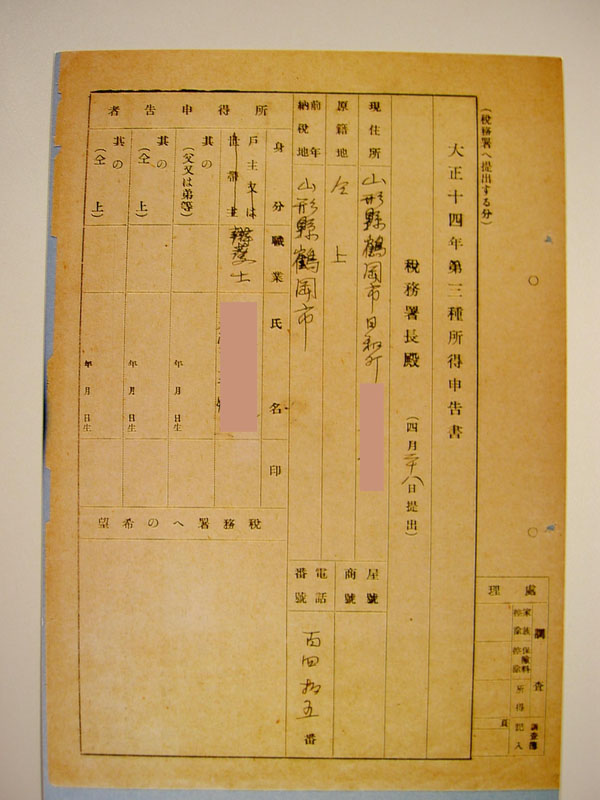 (税務署へ提出する分)
大正十四年第三種所得申告書
税務署長殿
(四月二十八日提出)
現住所
山形縣鶴岡市日和町
原籍地
仝上
前年納税地
山形縣鶴岡市
屋號
商號
電話
番號
百四拾五番
所得申告者
身分
職業
氏名
印
戸主又は
世帶主
辯護士
其の
(父又は弟等)
年月日生
其の
(仝上)
年月日生
其の
(仝上)
年月日生
税務署への希望
處理
調査
家族
控除
保險料
控除
所得
調査簿
記入
頁